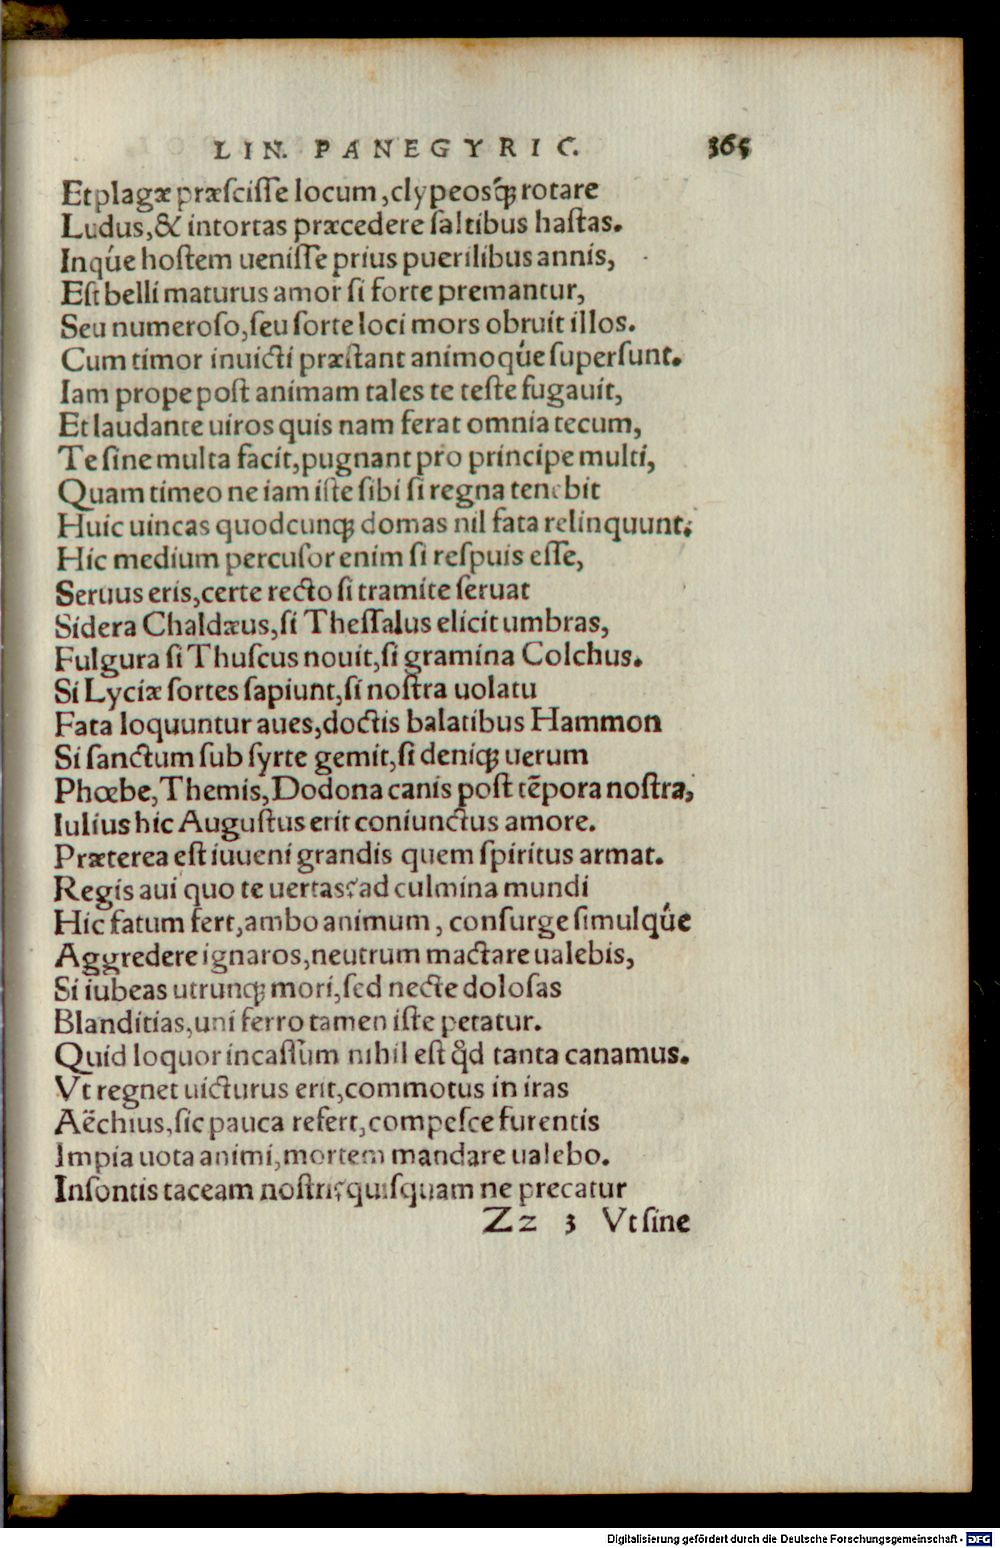 LIN. PANEGYRIC. 365
Et plagæ præſciſſe locum, clypeosq́ꝫ rotare
Ludus, & intortas præcedere ſaltibus haſtas.
Inqúe hoſtem ueniſſe prius puerilibus annis,
Eſt belli maturus amor ſi forte premantur,
Seu numeroſo, ſeu ſorte loci mors obruit illos.
Cum timor inuicti præſtant animoqúe ſuperſunt.
Iam prope poſt animam tales te teſte fugauit,
Et laudante uiros quis nam ferat omnia tecum,
Te ſine multa facit, pugnant pro principe multi,
Quam timeo ne iam iſte ſibi ſi regna tenebit
Huic uincas quodcunqꝫ domas nil fata relinquunt,
Hic medium percuſor enim ſi reſpuis eſſe,
Seruus eris, certe recto ſi tramite ſeruat
Sidera Chaldæus, ſi Theſſalus elicit umbras,
Fulgura ſi Thuſcus nouit, ſi gramina Colchus.
Si Lyciæ ſortes ſapiunt, ſi noſtra uolatu
Fata loquuntur aues, doctis balatibus Hammon
Si ſanctum ſub ſyrte gemit, ſi deniqꝫ uerum
Phœbe, Themis, Dodona canis poſt tēpora noſtra,
Iulius hic Auguſtus erit coniunctus amore.
Præterea eſt iuueni grandis quem ſpiritus armat.
Regis aui quo te uertas? ad culmina mundi
Hic fatum fert, ambo animum, conſurge ſimulqúe
Aggredere ignaros, neutrum mactare ualebis,
Si iubeas utrunqꝫ mori, ſed necte doloſas
Blanditias, uni ferro tamen iſte petatur.
Quid loquor incaſſum nihil eſt qd̉ tanta canamus.
Vt regnet uicturus erit, commotus in iras
Aëchius, ſic pauca refert, compeſce furentis
Impia uota animi, mortem mandare ualebo.
Inſontis taceam noſtri? quiſquam ne precatur
Zz 3 Vt ſine
Digitalisierung gefördert durch die Deutsche Forschungsgemeinschaft - DFG